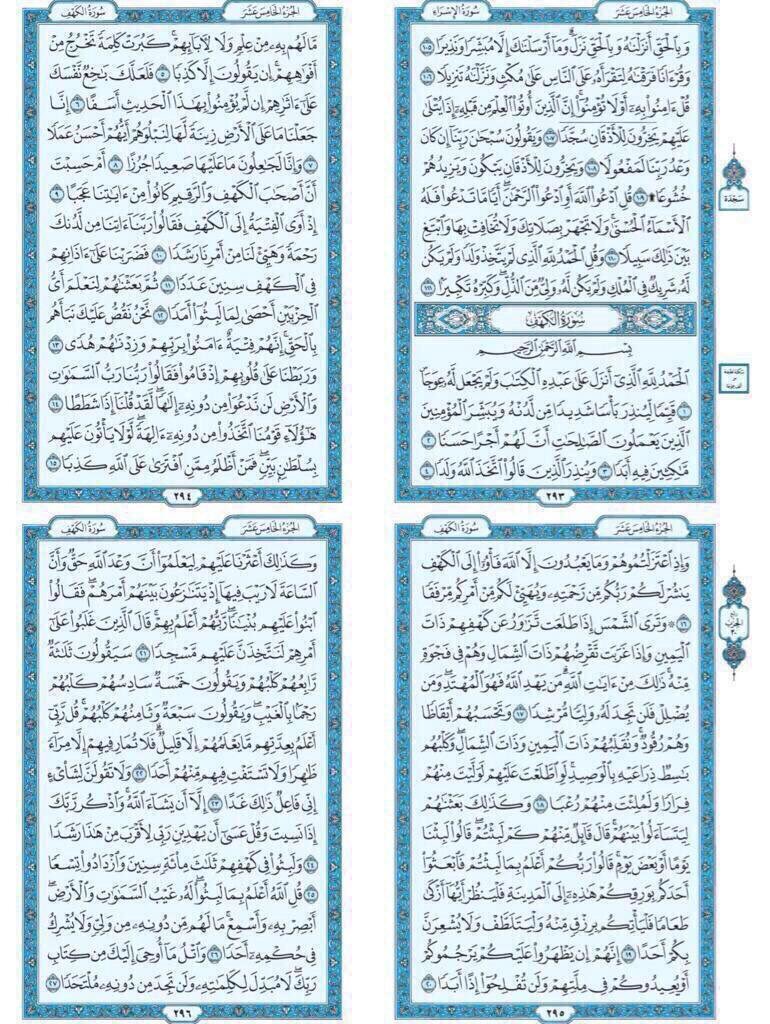 الجزء الخامس عشر
سورة الإسراء
وَبِالْحَقِّ أَنزَلْنَاهُ وَبِالْحَقِّ نَزَلَ ۗ وَمَا أَرْسَلْنَاكَ إِلَّا مُبَشِّرًا وَنَذِيرًا ١٠٥
وَقُرْآنًا فَرَقْنَاهُ لِتَقْرَأَهُ عَلَى النَّاسِ عَلَىٰ مُكْثٍ وَنَزَّلْنَاهُ تَنزِيلًا ١٠٦
قُلْ آمِنُوا بِهِ أَوْ لَا تُؤْمِنُوا ۚ إِنَّ الَّذِينَ أُوتُوا الْعِلْمَ مِن قَبْلِهِ إِذَا يُتْلَىٰ
عَلَيْهِمْ يَخِرُّونَ لِلْأَذْقَانِ سُجَّدًا ١٠٧ وَيَقُولُونَ سُبْحَانَ رَبِّنَا إِن كَانَ
وَعْدُ رَبِّنَا لَمَفْعُولًا ١٠٨ وَيَخِرُّونَ لِلْأَذْقَانِ يَبْكُونَ وَيَزِيدُهُمْ
خُشُوعًا ۩ ١٠٩ قُلِ ادْعُوا اللَّهَ أَوِ ادْعُوا الرَّحْمَٰنَ ۖ أَيًّا مَّا تَدْعُوا فَلَهُ
الْأَسْمَاءُ الْحُسْنَىٰ ۚ وَلَا تَجْهَرْ بِصَلَاتِكَ وَلَا تُخَافِتْ بِهَا وَابْتَغِ
بَيْنَ ذَٰلِكَ سَبِيلًا ١١٠ وَقُلِ الْحَمْدُ لِلَّهِ الَّذِي لَمْ يَتَّخِذْ وَلَدًا وَلَمْ يَكُن
لَّهُ شَرِيكٌ فِي الْمُلْكِ وَلَمْ يَكُن لَّهُ وَلِيٌّ مِّنَ الذُّلِّ ۖ وَكَبِّرْهُ تَكْبِيرًا ١١١
سورة الكهف
بِسْمِ اللَّهِ الرَّحْمَٰنِ الرَّحِيمِ
الْحَمْدُ لِلَّهِ الَّذِي أَنزَلَ عَلَىٰ عَبْدِهِ الْكِتَابَ وَلَمْ يَجْعَل لَّهُ عِوَجًا
١ قَيِّمًا لِّيُنذِرَ بَأْسًا شَدِيدًا مِّن لَّدُنْهُ وَيُبَشِّرَ الْمُؤْمِنِينَ
الَّذِينَ يَعْمَلُونَ الصَّالِحَاتِ أَنَّ لَهُمْ أَجْرًا حَسَنًا ٢
مَّاكِثِينَ فِيهِ أَبَدًا ٣ وَيُنذِرَ الَّذِينَ قَالُوا اتَّخَذَ اللَّهُ وَلَدًا ٤
٢٩٣
سجدة
الجزء الخامس عشر
سورة الكهف
مَّا لَهُم بِهِ مِنْ عِلْمٍ وَلَا لِآبَائِهِمْ ۚ كَبُرَتْ كَلِمَةً تَخْرُجُ مِنْ
أَفْوَاهِهِمْ ۚ إِن يَقُولُونَ إِلَّا كَذِبًا ٥ فَلَعَلَّكَ بَاخِعٌ نَّفْسَكَ
عَلَىٰ آثَارِهِمْ إِن لَّمْ يُؤْمِنُوا بِهَٰذَا الْحَدِيثِ أَسَفًا ٦ إِنَّا
جَعَلْنَا مَا عَلَى الْأَرْضِ زِينَةً لَّهَا لِنَبْلُوَهُمْ أَيُّهُمْ أَحْسَنُ عَمَلًا
٧ وَإِنَّا لَجَاعِلُونَ مَا عَلَيْهَا صَعِيدًا جُرُزًا ٨ أَمْ حَسِبْتَ
أَنَّ أَصْحَابَ الْكَهْفِ وَالرَّقِيمِ كَانُوا مِنْ آيَاتِنَا عَجَبًا ٩
إِذْ أَوَى الْفِتْيَةُ إِلَى الْكَهْفِ فَقَالُوا رَبَّنَا آتِنَا مِن لَّدُنكَ
رَحْمَةً وَهَيِّئْ لَنَا مِنْ أَمْرِنَا رَشَدًا ١٠ فَضَرَبْنَا عَلَىٰ آذَانِهِمْ
فِي الْكَهْفِ سِنِينَ عَدَدًا ١١ ثُمَّ بَعَثْنَاهُمْ لِنَعْلَمَ أَيُّ
الْحِزْبَيْنِ أَحْصَىٰ لِمَا لَبِثُوا أَمَدًا ١٢ نَّحْنُ نَقُصُّ عَلَيْكَ نَبَأَهُم
بِالْحَقِّ ۚ إِنَّهُمْ فِتْيَةٌ آمَنُوا بِرَبِّهِمْ وَزِدْنَاهُمْ هُدًى ١٣
وَرَبَطْنَا عَلَىٰ قُلُوبِهِمْ إِذْ قَامُوا فَقَالُوا رَبُّنَا رَبُّ السَّمَاوَاتِ
وَالْأَرْضِ لَن نَّدْعُوَ مِن دُونِهِ إِلَٰهًا ۖ لَّقَدْ قُلْنَا إِذًا شَطَطًا ١٤
هَٰؤُلَاءِ قَوْمُنَا اتَّخَذُوا مِن دُونِهِ آلِهَةً ۖ لَّوْلَا يَأْتُونَ عَلَيْهِم
بِسُلْطَانٍ بَيِّنٍ ۖ فَمَنْ أَظْلَمُ مِمَّنِ افْتَرَىٰ عَلَى اللَّهِ كَذِبًا ١٥
٢٩٤
الجزء الخامس عشر
سورة الكهف
وَإِذِ اعْتَزَلْتُمُوهُمْ وَمَا يَعْبُدُونَ إِلَّا اللَّهَ فَأْوُوا إِلَى الْكَهْفِ
يَنشُرْ لَكُمْ رَبُّكُم مِّن رَّحْمَتِهِ وَيُهَيِّئْ لَكُم مِّنْ أَمْرِكُم مِّرْفَقًا
١٦ ۞ وَتَرَى الشَّمْسَ إِذَا طَلَعَت تَّزَاوَرُ عَن كَهْفِهِمْ ذَاتَ
الْيَمِينِ وَإِذَا غَرَبَت تَّقْرِضُهُمْ ذَاتَ الشِّمَالِ وَهُمْ فِي فَجْوَةٍ
مِّنْهُ ۚ ذَٰلِكَ مِنْ آيَاتِ اللَّهِ ۗ مَن يَهْدِ اللَّهُ فَهُوَ الْمُهْتَدِ ۖ وَمَن
يُضْلِلْ فَلَن تَجِدَ لَهُ وَلِيًّا مُّرْشِدًا ١٧ وَتَحْسَبُهُمْ أَيْقَاظًا
وَهُمْ رُقُودٌ ۚ وَنُقَلِّبُهُمْ ذَاتَ الْيَمِينِ وَذَاتَ الشِّمَالِ ۖ وَكَلْبُهُم
بَاسِطٌ ذِرَاعَيْهِ بِالْوَصِيدِ ۚ لَوِ اطَّلَعْتَ عَلَيْهِمْ لَوَلَّيْتَ مِنْهُمْ
فِرَارًا وَلَمُلِئْتَ مِنْهُمْ رُعْبًا ١٨ وَكَذَٰلِكَ بَعَثْنَاهُمْ
لِيَتَسَاءَلُوا بَيْنَهُمْ ۚ قَالَ قَائِلٌ مِّنْهُمْ كَمْ لَبِثْتُمْ ۖ قَالُوا لَبِثْنَا
يَوْمًا أَوْ بَعْضَ يَوْمٍ ۚ قَالُوا رَبُّكُمْ أَعْلَمُ بِمَا لَبِثْتُمْ فَابْعَثُوا
أَحَدَكُم بِوَرِقِكُمْ هَٰذِهِ إِلَى الْمَدِينَةِ فَلْيَنظُرْ أَيُّهَا أَزْكَىٰ
طَعَامًا فَلْيَأْتِكُم بِرِزْقٍ مِّنْهُ وَلْيَتَلَطَّفْ وَلَا يُشْعِرَنَّ
بِكُمْ أَحَدًا ١٩ إِنَّهُمْ إِن يَظْهَرُوا عَلَيْكُمْ يَرْجُمُوكُمْ
أَوْ يُعِيدُوكُمْ فِي مِلَّتِهِمْ وَلَن تُفْلِحُوا إِذًا أَبَدًا ٢٠
٢٩٥
الجزء الخامس عشر
سورة الكهف
وَكَذَٰلِكَ أَعْثَرْنَا عَلَيْهِمْ لِيَعْلَمُوا أَنَّ وَعْدَ اللَّهِ حَقٌّ وَأَنَّ
السَّاعَةَ لَا رَيْبَ فِيهَا إِذْ يَتَنَازَعُونَ بَيْنَهُمْ أَمْرَهُمْ ۖ فَقَالُوا
ابْنُوا عَلَيْهِم بُنْيَانًا ۖ رَّبُّهُمْ أَعْلَمُ بِهِمْ ۚ قَالَ الَّذِينَ غَلَبُوا عَلَىٰ
أَمْرِهِمْ لَنَتَّخِذَنَّ عَلَيْهِم مَّسْجِدًا ٢١ سَيَقُولُونَ ثَلَاثَةٌ
رَّابِعُهُمْ كَلْبُهُمْ وَيَقُولُونَ خَمْسَةٌ سَادِسُهُمْ كَلْبُهُمْ
رَجْمًا بِالْغَيْبِ ۖ وَيَقُولُونَ سَبْعَةٌ وَثَامِنُهُمْ كَلْبُهُمْ ۚ قُل رَّبِّي
أَعْلَمُ بِعِدَّتِهِم مَّا يَعْلَمُهُمْ إِلَّا قَلِيلٌ ۗ فَلَا تُمَارِ فِيهِمْ إِلَّا مِرَاءً
ظَاهِرًا وَلَا تَسْتَفْتِ فِيهِم مِّنْهُمْ أَحَدًا ٢٢ وَلَا تَقُولَنَّ لِشَيْءٍ
إِنِّي فَاعِلٌ ذَٰلِكَ غَدًا ٢٣ إِلَّا أَن يَشَاءَ اللَّهُ ۚ وَاذْكُر رَّبَّكَ
إِذَا نَسِيتَ وَقُلْ عَسَىٰ أَن يَهْدِيَنِ رَبِّي لِأَقْرَبَ مِنْ هَٰذَا رَشَدًا
٢٤ وَلَبِثُوا فِي كَهْفِهِمْ ثَلَاثَ مِائَةٍ سِنِينَ وَازْدَادُوا تِسْعًا
٢٥ قُلِ اللَّهُ أَعْلَمُ بِمَا لَبِثُوا ۖ لَهُ غَيْبُ السَّمَاوَاتِ وَالْأَرْضِ ۖ
أَبْصِرْ بِهِ وَأَسْمِعْ ۚ مَا لَهُم مِّن دُونِهِ مِن وَلِيٍّ وَلَا يُشْرِكُ
فِي حُكْمِهِ أَحَدًا ٢٦ وَاتْلُ مَا أُوحِيَ إِلَيْكَ مِن كِتَابِ
رَبِّكَ ۖ لَا مُبَدِّلَ لِكَلِمَاتِهِ وَلَن تَجِدَ مِن دُونِهِ مُلْتَحَدًا ٢٧
٢٩٦